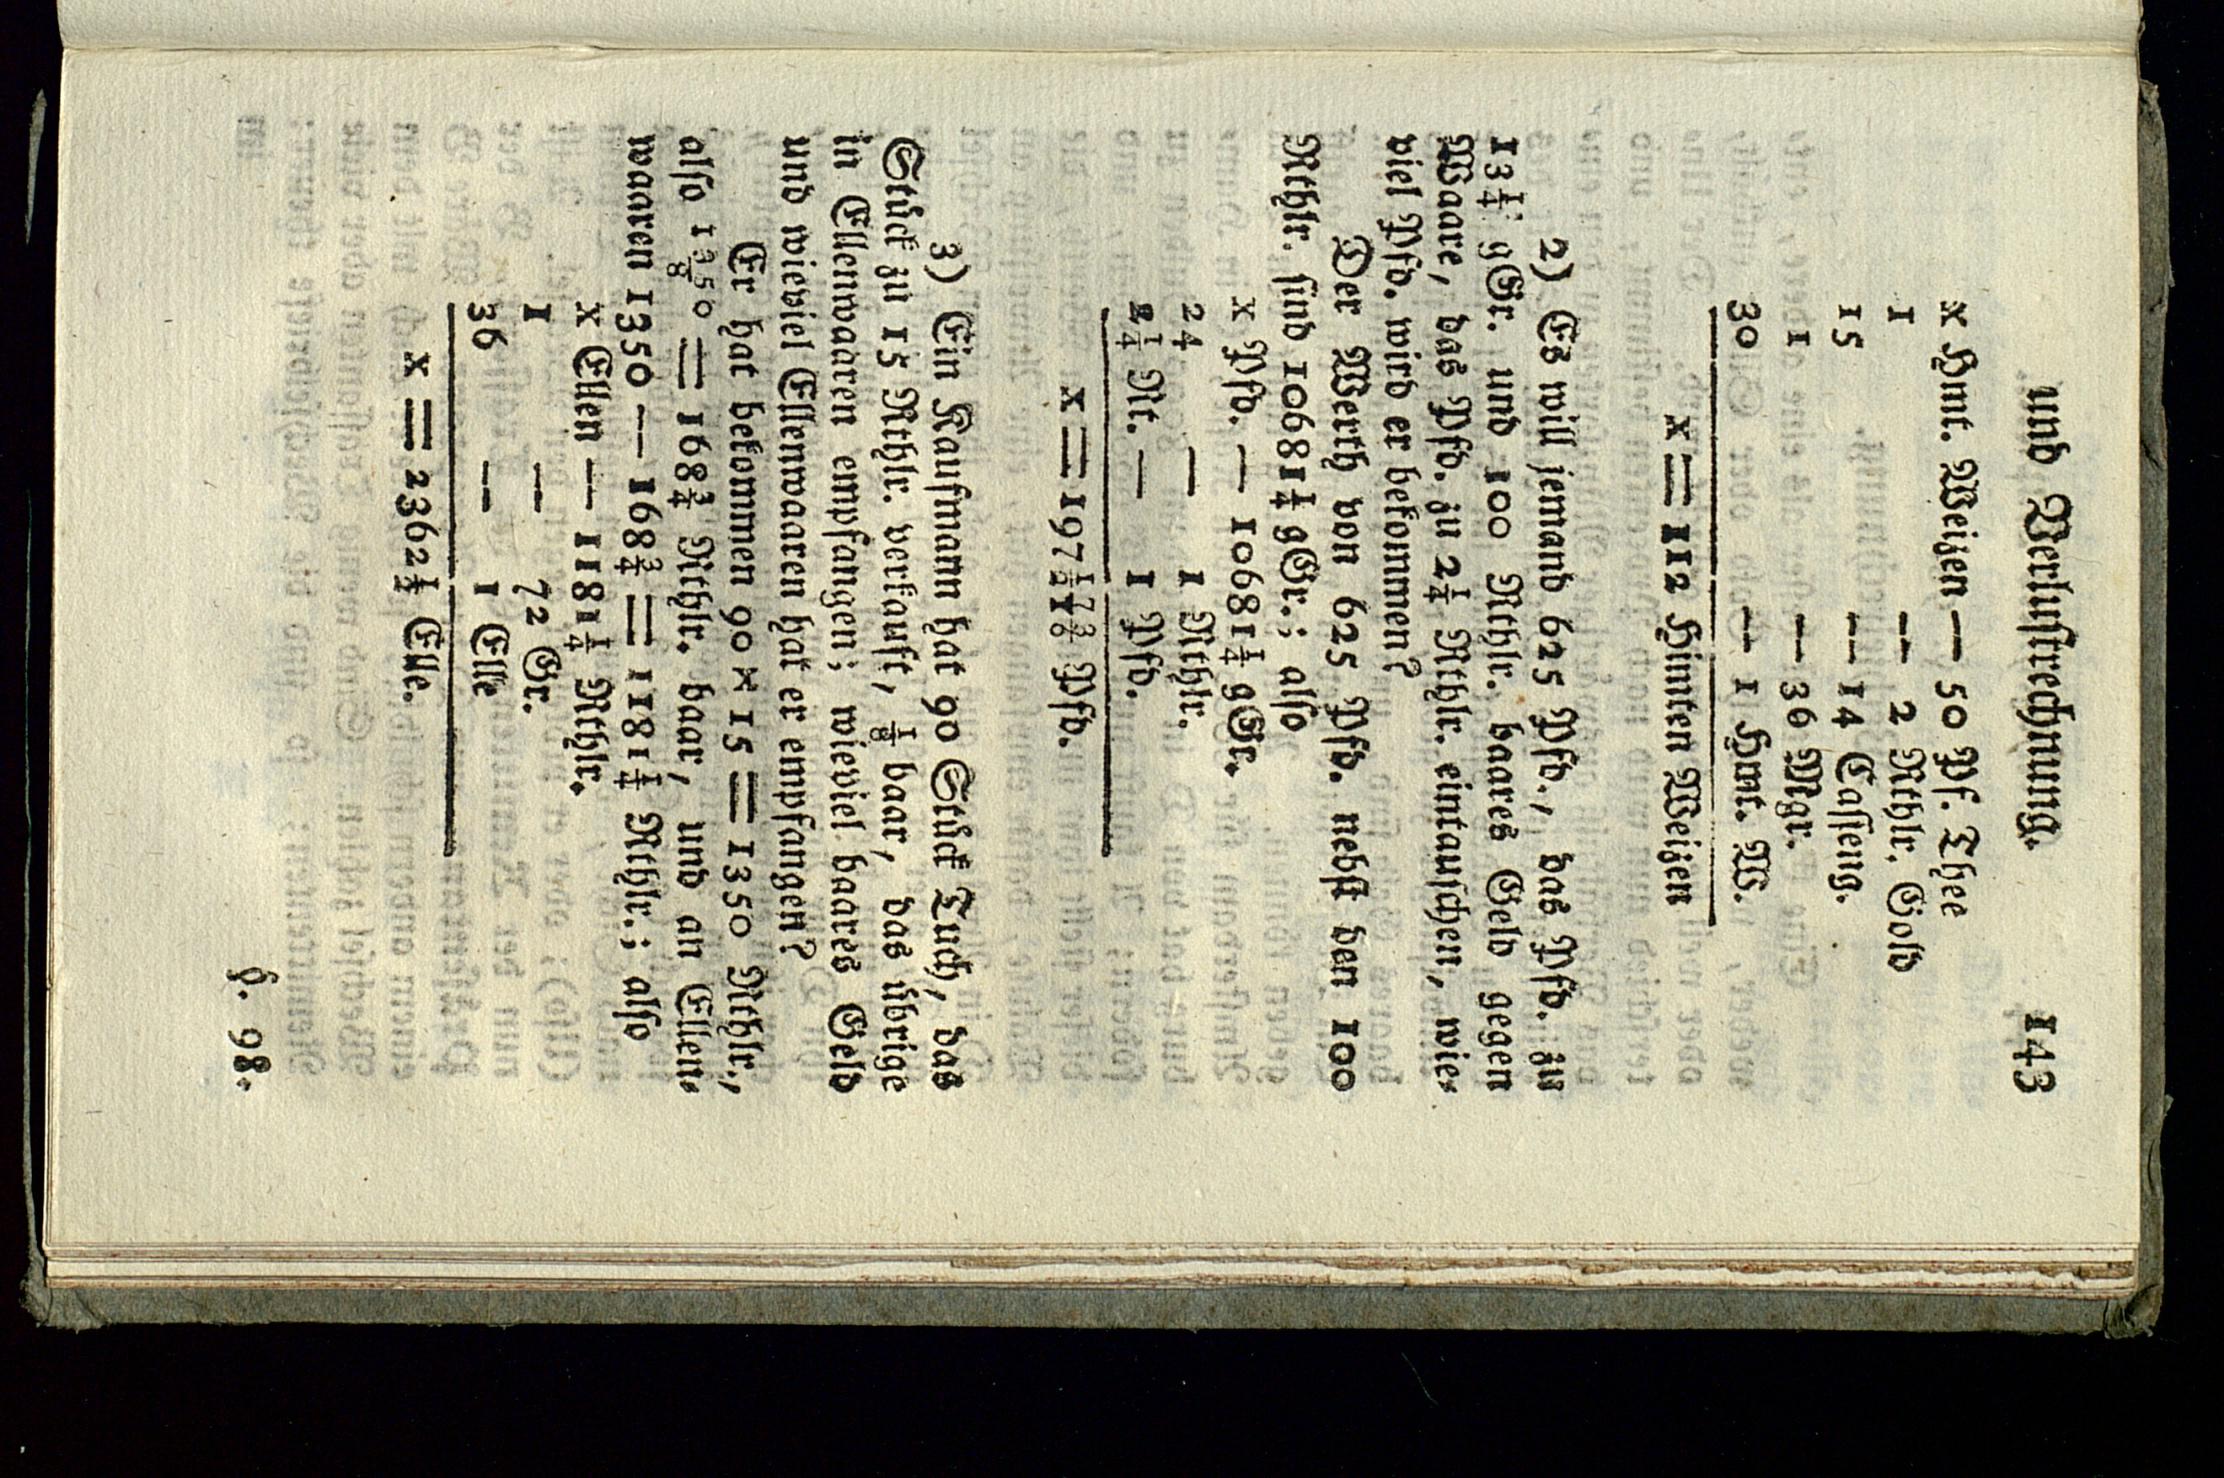 und Verlustrechnung. 143
x Hmt. Weizen — 50 Pf. Thee
1 — 2 Rthlr. Gold
15 — 14 Casseng.
1 — 36 Mgr.
30 — 1 Hmt. W.
x = 112 Himten Weizen
2) Es will jemand 625 Pfd., das Pfd. zu
13¼ gGr. und 100 Rthlr. baares Geld gegen
Waare, das Pfd. zu 2¼ Rthlr. eintauschen, wie-
viel Pfd. wird er bekommen?
Der Werth von 625 Pfd. nebst den 100
Rthlr. sind 10681¼ gGr.; also
x Pfd. — 10681¼ gGr.
24 — 1 Rthlr.
2¼ Rt. — 1 Pfd.
x = 197 Pfd.
3) Ein Kaufmann hat 90 Stück Tuch, das
Stück zu 15 Rthlr. verkauft, ⅛ baar, das übrige
in Ellenwaaren empfangen; wieviel baares Geld
und wieviel Ellenwaaren hat er empfangen?
Er hat bekommen 90 × 15 = 1350 Rthlr.,
also 1350/8 = 168¾ Rthlr. baar, und an Ellen-
waaren 1350 — 168¾ = 1181¼ Rthlr.; also
x Ellen — 1181¼ Rthlr.
1 — 72 Gr.
36 — 1 Elle
x = 2362½ Elle.
§. 98.